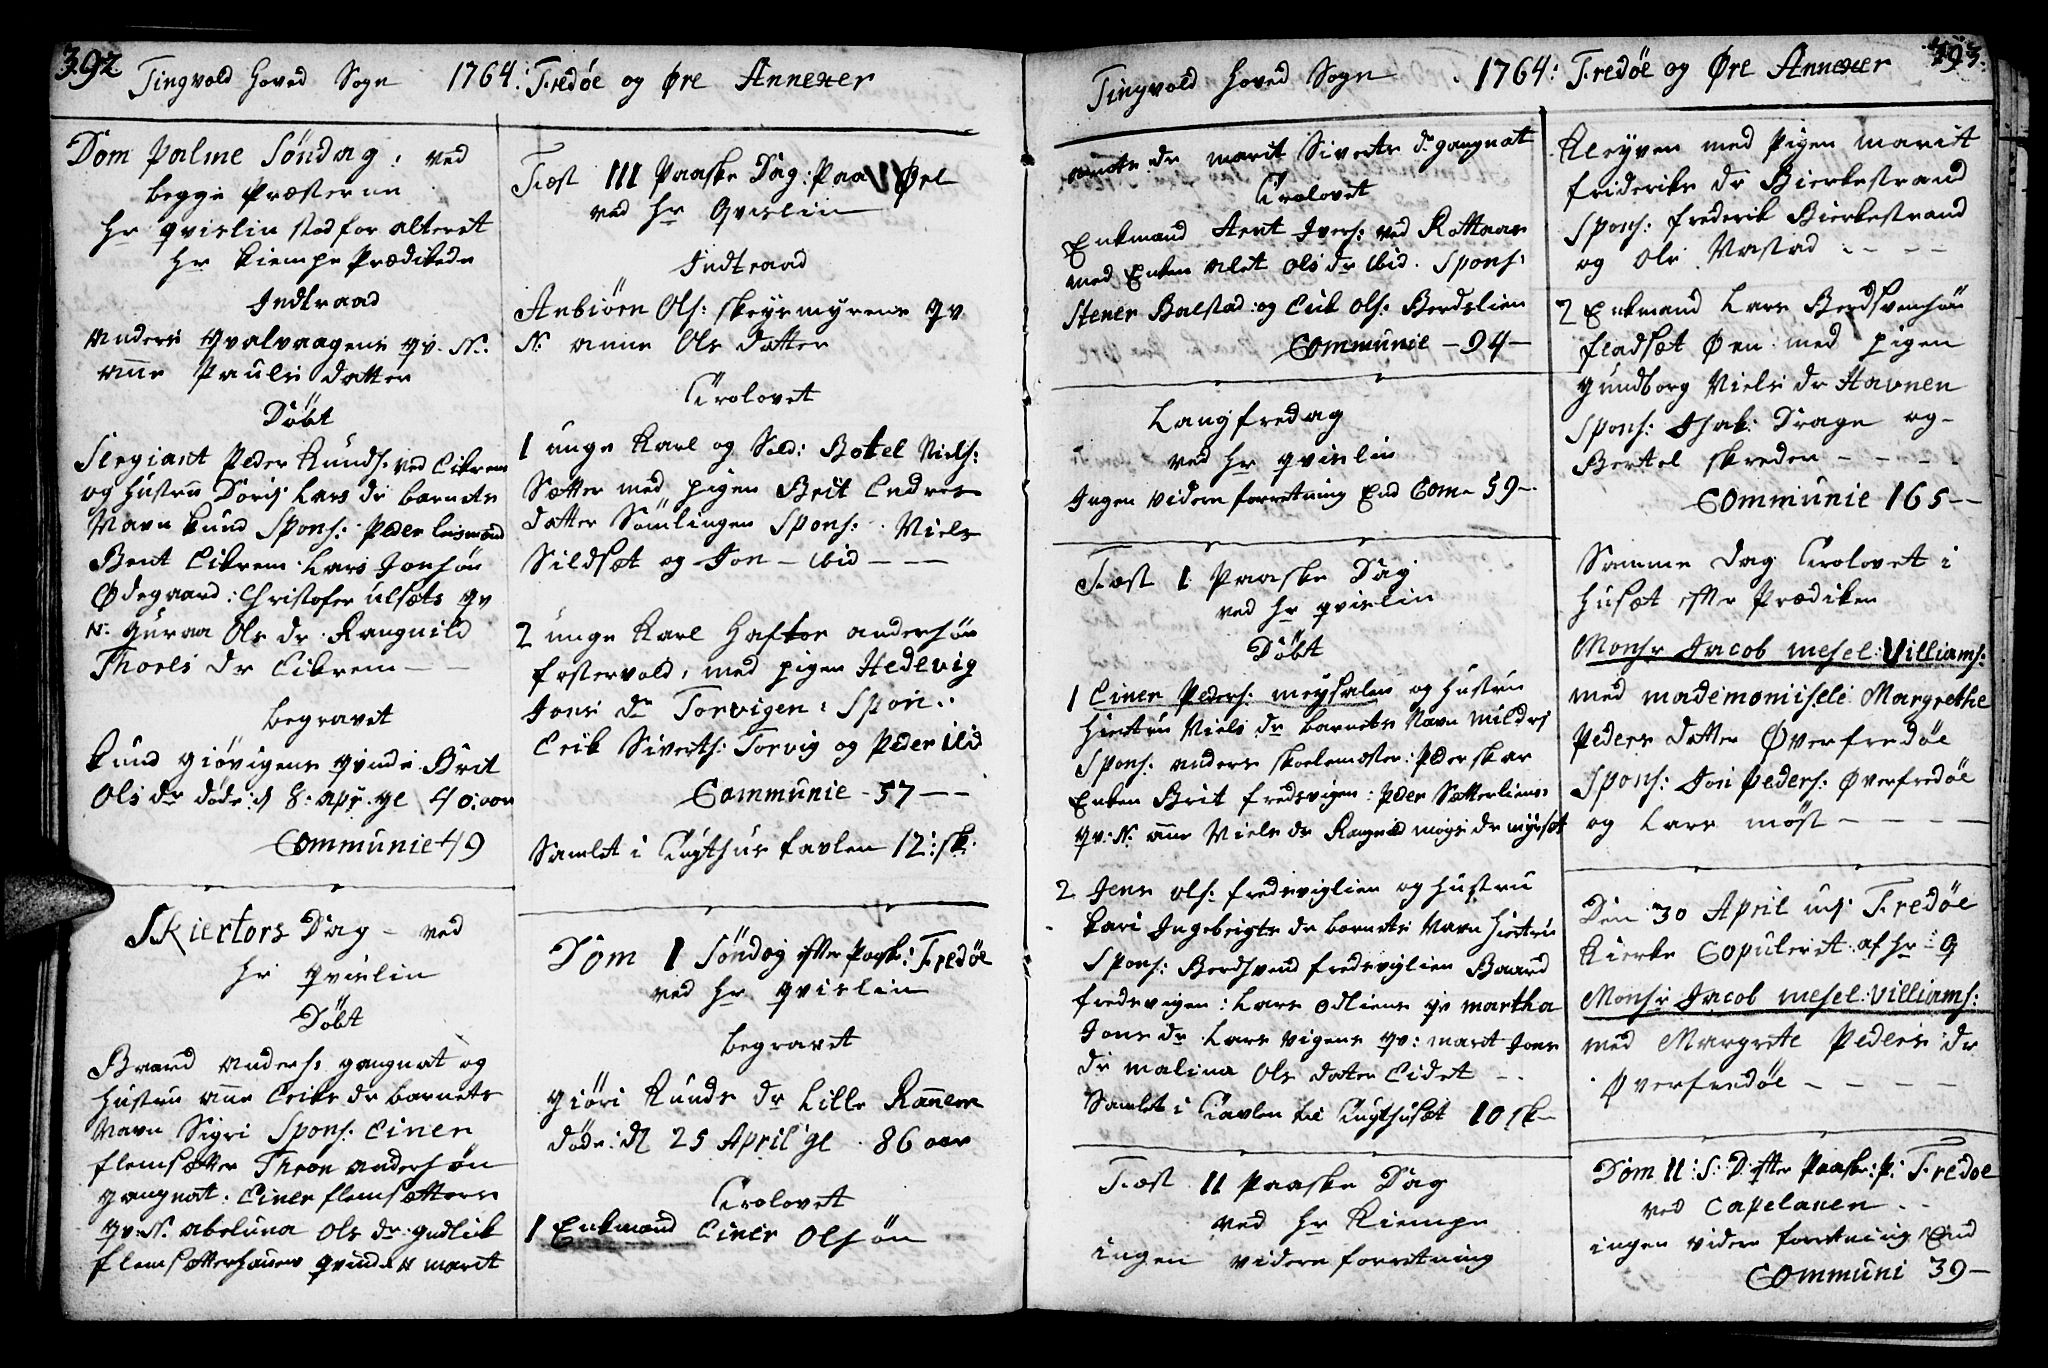 392
Tingvold Hoved Sogn 1764: Fredöe og Øre Annexer
Dom Palme Söndag: ved
begge Præsterne
Hr Qvislin stod for alteret
Hr Kiempe Prædikede
Indtraad
Anders Qvalvaagens Qv. N:
Ane Pauls datter
Döbt
Sergiant Peder Knuds: ved Eikrem
og Hustru Doris Lars dr barnets
Navn Knud Spons: Peder
Bent Eikrem Lars Jonsön
Ødegaard: Christofer Ulsets Qv
N: Guraa Ols dr Rangnild
Thoers dr Eikrem
begravet
Knud Giövigens Qvinde Brit
Ols dr döde d 8: apr. gl 40: aar
Communic 49
Skiertors Dag - ved
Hr Qvislin
Döbt
Baard Anders: gangnat og
Hustru Ane Eriks dr barnets
Navn Sigri Spons: Einer
flemsætter Thron Andersön
gangnat: Einer flemsætters
Qv: N: Abeluna Ols dr gudlik
flemsætterhauen Qvinde N marit
Fæst III Paaske Dag: Paa Øre
ved Hr Qvislin
Indtraad
Anbiörn Ols: Skeysmyrens Qv
N: Anne Ols datter
Trolovet
1 unge Karl og Sold: Botel Niels:
Sætter med pigen Brit Endres
datter Sömlingen Spons: Niels
Sildset og Jon - ibid - - -
2 unge Karl Haftor Andersön
fostervold, med pigen Hedevig
Jons dr Torvigen: Spon:
Erik Siverts: Torvig og Peder ibid
Communic - 57 - -
Samlet i Tugthus tavlen 12: sk:
Dom I Söndag efter Paask: Fredöe
ved Hr Qvislin
begravet
Giöri Knuds dr Lille Ranem
döde: d 25 April gl . 86 aar
Trolovet
1 Enkmand Einer Olsön
Tingvold Hoved Sogn . 1764: Fredöe og Øre Annexer 393:
dr marit Siverts dr gangnat
Trolovet
Enkmand Arnt Ivers: ved Rottaas
med Enken Alet Ols dr ibid. Spons:
Stener Bolstad og Erik Ols: Bordslien
Communic - 94 -
Langfredag
ved Hr Qvislin
Ingen videre forretning End Com - 59 -
Fæst I Paaske Dag
ved Hr Qvislin
Döbt
1 Einer Peders: meysalen og Hustru
Hiertru Niels dr barnets Navn Mildri
Spons: Anders Skolemester: Peder Skar
Enken Brit fredsvigen: Peder Sætterliens
Qv: N: Ane Niels dr Rangnild mogs dr myrset
2 Jens Ols: fredsviglien og Hustru
Kari Ingebrigts dr barnets Navn Hiertrü
Spons: Bordsvend fredsviglien Baard
fredsvigen: Lars Odliens Qv Martha
Jons dr Lars vigens Qv: marit Jons
dr malina Ols dater Eidet - -
Samlet i Tavlen til Tugthuset 10 sk -
Fæst II Paaske Dag
ved Hr Kiempe
ingen videre forretning
Kleyven med Pigen Marit
frideriks dr Bierkestrand
Spons: frederik Bierkestrand
og Ole Vastad - - - -
2 Enkmand Lars Bordsvensön
fladset Øen med pigen
Gundborg Niels dr Stavnen
Spons: Isak: Drage og -
Bertel skreder - - - -
Communic 165 - -
Samme Dag Trolovet i
Huset efter Prædiken
Monsr Jacob Mesel: Villiams:
med Mademomisele Margrethe
Peders datter Øverfredöe
Spons: Jon Peders: Øverfredöe
og Lars möst - - - -
Den 30 April udj Fredöe
Kierke Copuleret af Hr: Q
Monsr Jacob Mesel: Villiams:
med Margrete Peders dr
Øverfredöe - - - -
Dom II: S: D efter Paaske: P: Fredöe
ved Capelanen . .
ingen videre forretning End
Communi 39 -